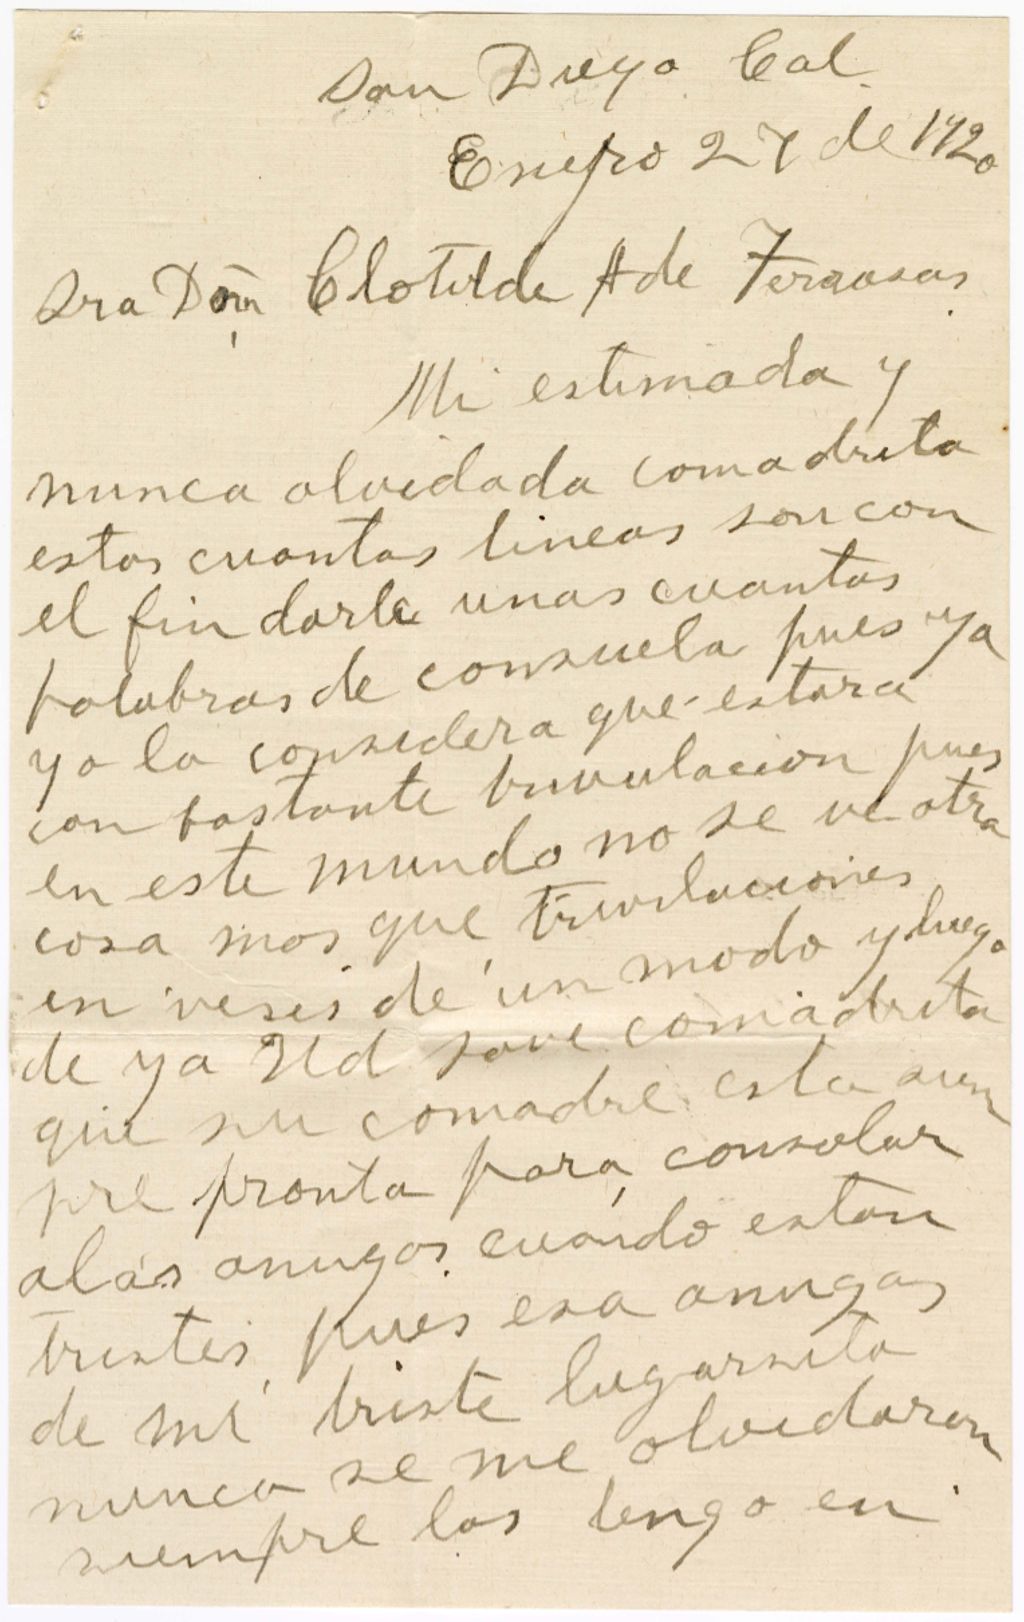 San Diego Cal
Enero 27 de 1920
Sra Doña Clotilde A de Terrasas.
Mi estimada y
nunca olvidada comadrita
estas cuantas lineas son con
el fin darle unas cuantas
palabras de consuela pues ya
yo la considera que estara
con bastante truvulacion pues
en este mundo no se ve otra
cosa mas que truvulaciones
en veses de un modo y luego
de ya Ud save comadrita
que su comadre esta siem
pre pronta para consolar
alas amigas cuando estan
tristes, pues esa amigas
de mi triste lugarsito
nunca se me olvidaran
siempre las tengo en